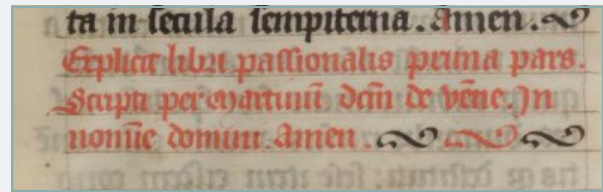 ta in secula sempiterna. Amen.
Explicit libri passionalis prima pars.
Scripti per Martinū dcm̄ de vēne. In
nomīe domini. Amen.